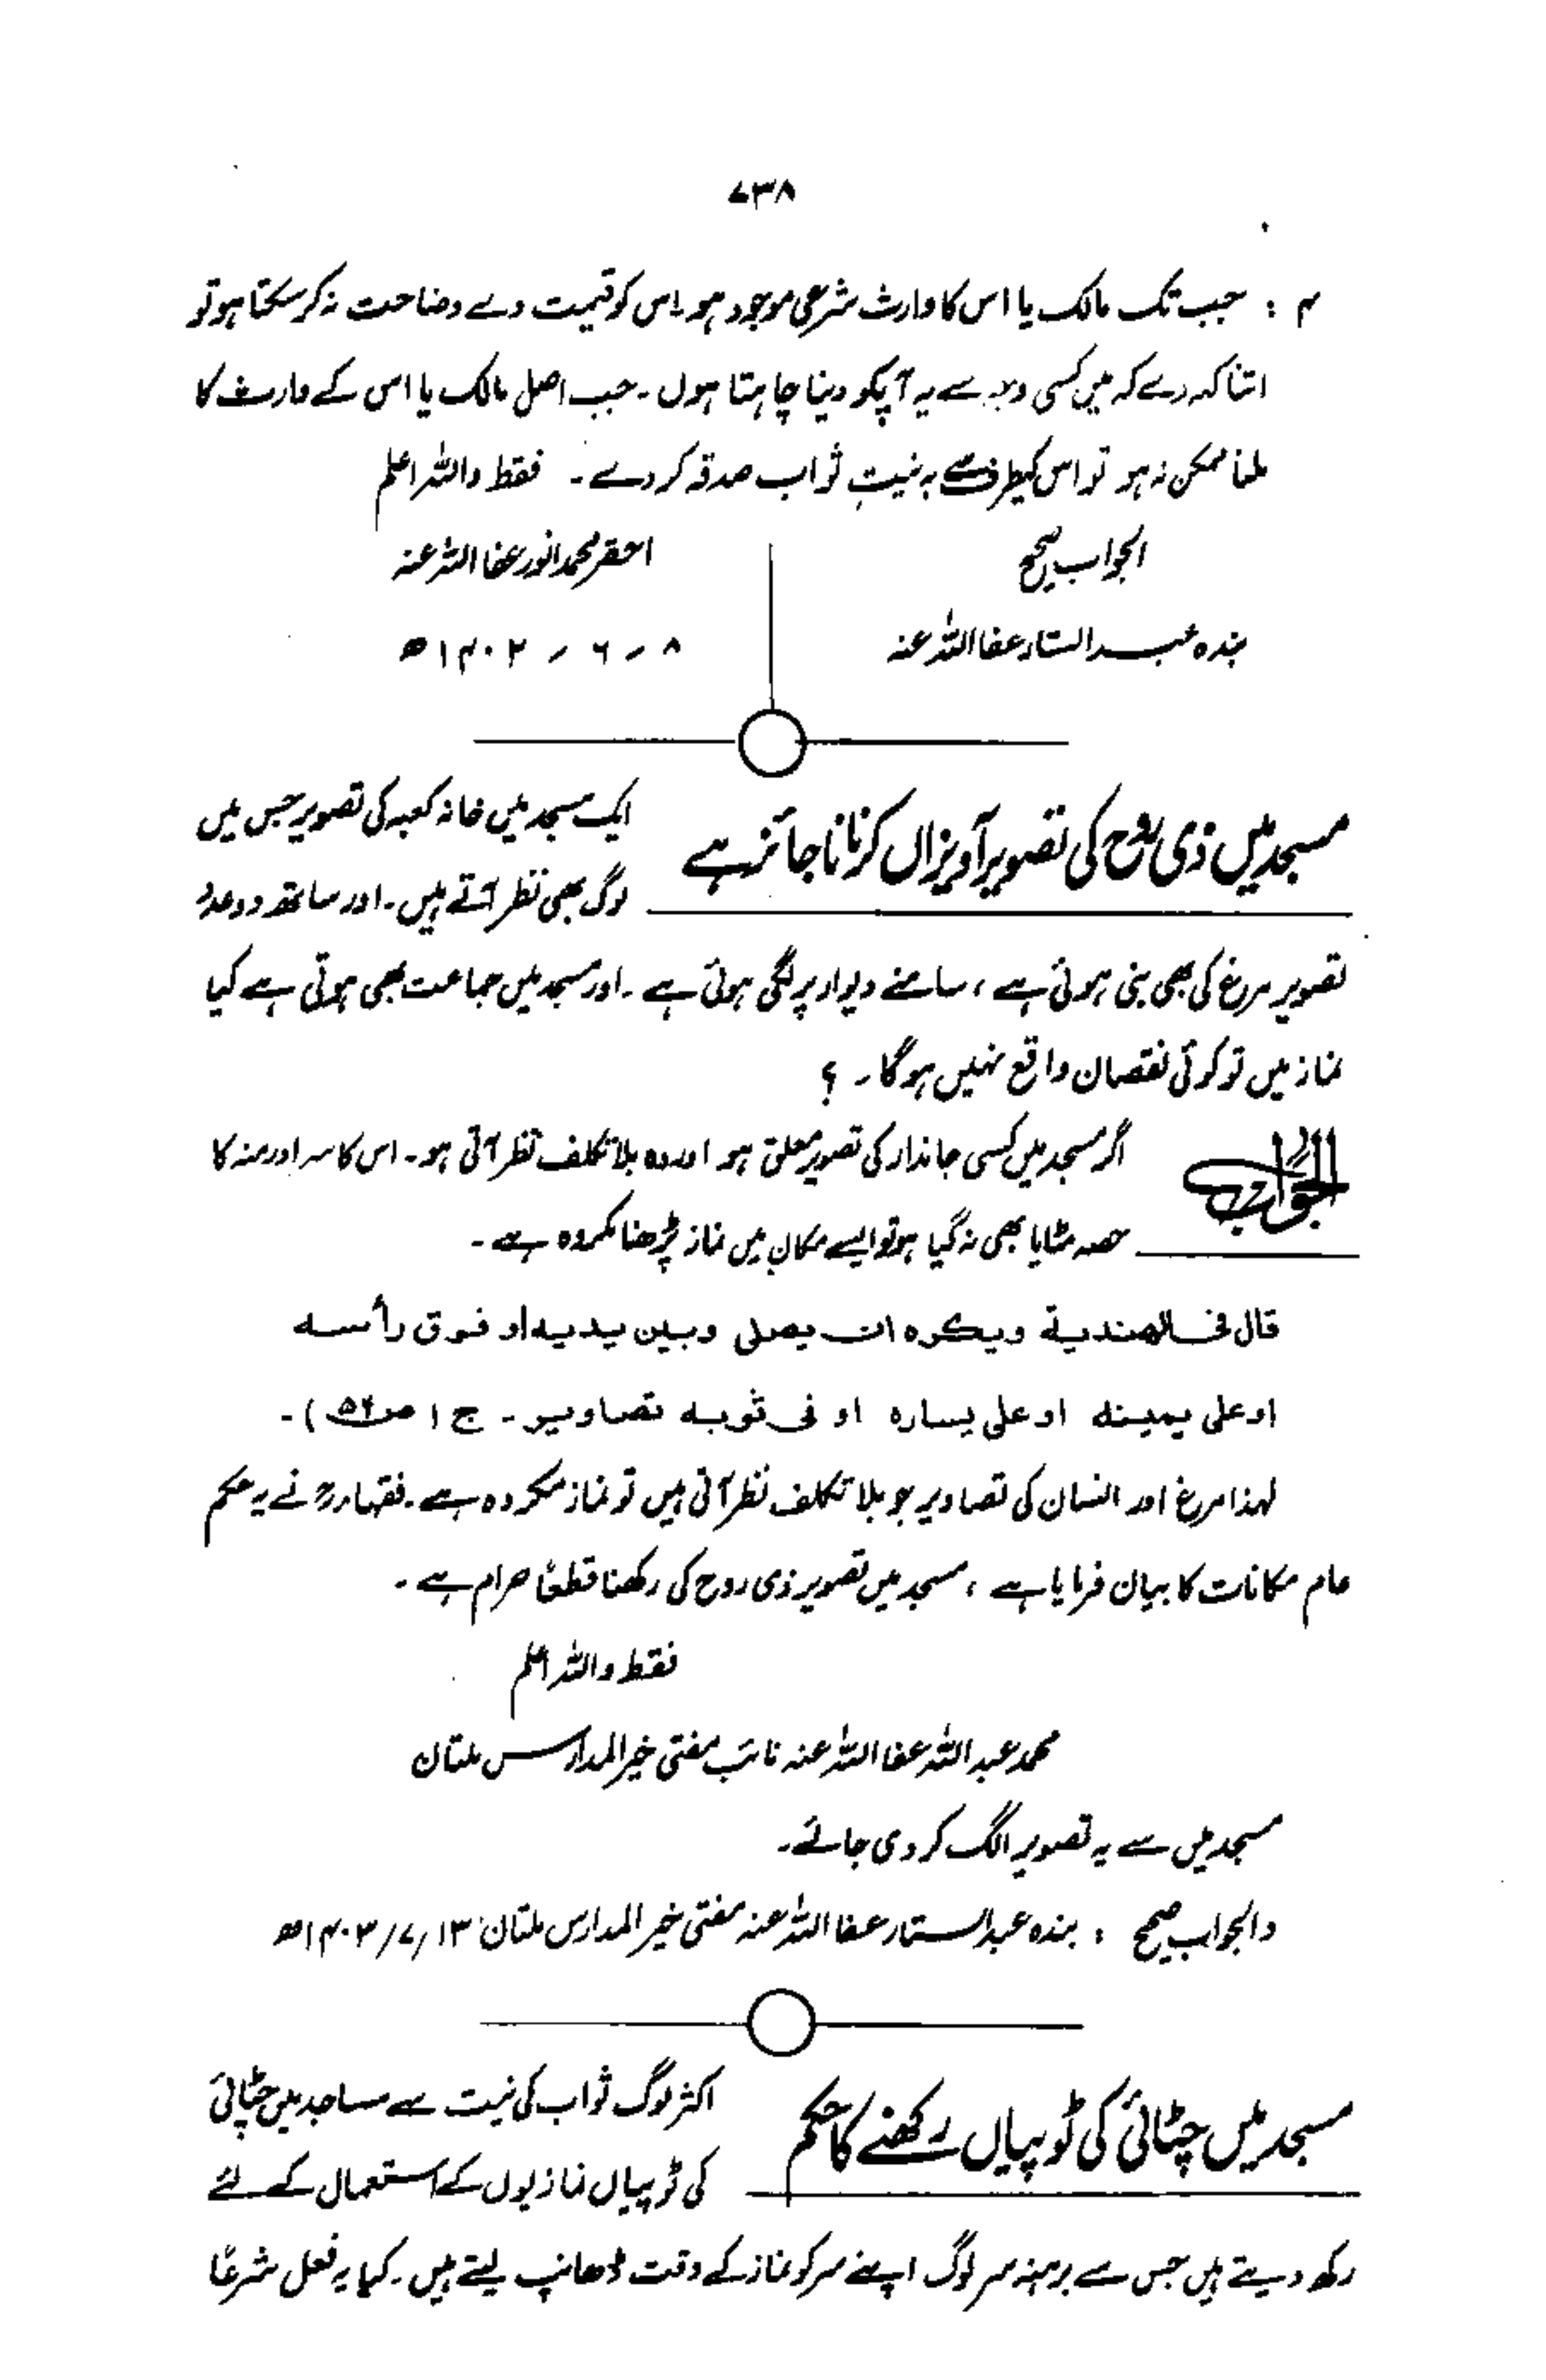 ۷۳۸
۴ : جب تک مالک یا اس کا وارث شرعی موجود ہو۔ اس کو قیمت دے وضاحت نہ کر سکتا ہو تو
اتنا کہہ دے کہ میں کسی وجہ سے یہ آپکو دینا چاہتا ہوں ۔ جب اصل مالک یا اس کے وارث کا
ملنا ممکن نہ ہو تو اس کیطرف سے بہ نیتِ ثواب صدقہ کر دے ۔ فقط واللہ اعلم
الجواب صحیح
بندہ عبدالستار عفا اللہ عنہ
احقر محمد انور عفا اللہ عنہ
۸ ۔ ۶ ۔ ۱۴۰۲ھ
مسجد میں ذی روح کی تصویر آویزاں کرنا ناجائز ہے
ایک مسجد میں خانہ کعبہ کی تصویر جس میں
لوگ بھی نظر آتے ہیں ۔ اور ساتھ دو عدد
تصویر مرغ کی بھی بنی ہوئی ہے ، سامنے دیوار پر لگی ہوئی ہے ۔ اور مسجد میں جماعت بھی ہوتی ہے کیا
نماز میں تو کوئی نقصان واقع نہیں ہوگا ۔ ؟
الجواب
اگر مسجد میں کسی جاندار کی تصویر معلق ہو اور وہ بلا تکلف نظر آتی ہو ۔ اس کا سر اور منہ کا
حصہ مٹایا بھی نہ گیا ہو تو ایسے مکان میں نماز پڑھنا مکروہ ہے ۔
قال فی الهندية ويكره ان يصلى وبين يديه او فوق رأسه
او على يمينه او على يساره او فى ثوبه تصاوير ۔ ج ۱ (ص۵۶) ۔
لہذا مرغ اور انسان کی تصاویر جو بلا تکلف نظر آتی ہیں تو نماز مکروہ ہے ۔ فقہاءؒ نے یہ حکم
عام مکانات کا بیان فرمایا ہے ، مسجد میں تصویر ذی روح کی رکھنا قطعاً حرام ہے ۔
فقط واللہ اعلم
محمد عبد اللہ عفا اللہ عنہ نائب مفتی خیر المدارس ملتان
مسجد میں سے یہ تصویر الگ کر دی جائے ۔
والجواب صحیح : بندہ عبد الستار عفا اللہ عنہ مفتی خیر المدارس ملتان ۱۳/۷/۱۴۰۳ھ
مسجد میں چٹائی کی ٹوپیاں رکھنے کا حکم
اکثر لوگ ثواب کی نیت سے مساجد میں چٹائی
کی ٹوپیاں نمازیوں کے استعمال کے لئے
رکھ دیتے ہیں جس سے برہنہ سر لوگ اپنے سر کو نماز کے وقت ڈھانپ لیتے ہیں ۔ کیا یہ فعل شرعاً